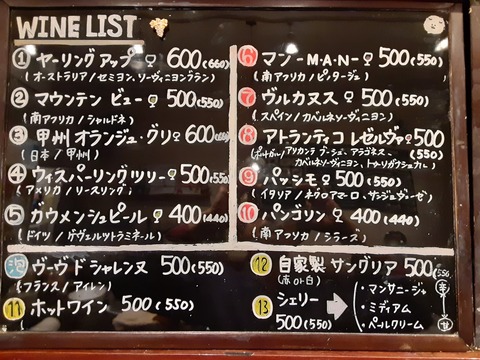 WINE LIST
① ヤーリング アップ ♀ 600(660)
(オーストラリア/セミヨン、ソーヴィニヨンブラン)
② マウンテン ビュー ♀ 500(550)
(南アフリカ/シャルドネ)
③ 甲州 オランジュ・グリ♀ 600(660)
(日本/甲州)
④ ウィスパーリングツリー♀500(550)
(アメリカ/リースリング)
⑤ カウメンシュピール ♀ 400(440)
(ドイツ/ゲヴェルツトラミネール)
泡 ヴーヴ ド シャレンヌ 500(550)
(フランス/アイレン)
11 ホットワイン 500(550)
⑥ マン -M・A・N- ♀ 500(550)
(南アフリカ/ピノタージュ)
⑦ ヴルカヌス ♀ 500(550)
(スペイン/カベルネソーヴィニヨン)
⑧ アトランティコ レゼルヴァ♀500
(550)
(ポルトガル/アリカンテ ブーシェ、アラゴネス、
カベルネソーヴィニヨン、)
⑨ パッシモ ♀ 500(550)
(イタリア/ネグロアマーロ、サンジョヴェーゼ)
⑩ パンゴリン ♀ 400(440)
(南アフリカ/シラーズ)
12 自家製 サングリア 500(550)
(赤or白)
13 シェリー
500(550)
・マンサニージャ
・ミディアム
・ペールクリーム
辛
甘